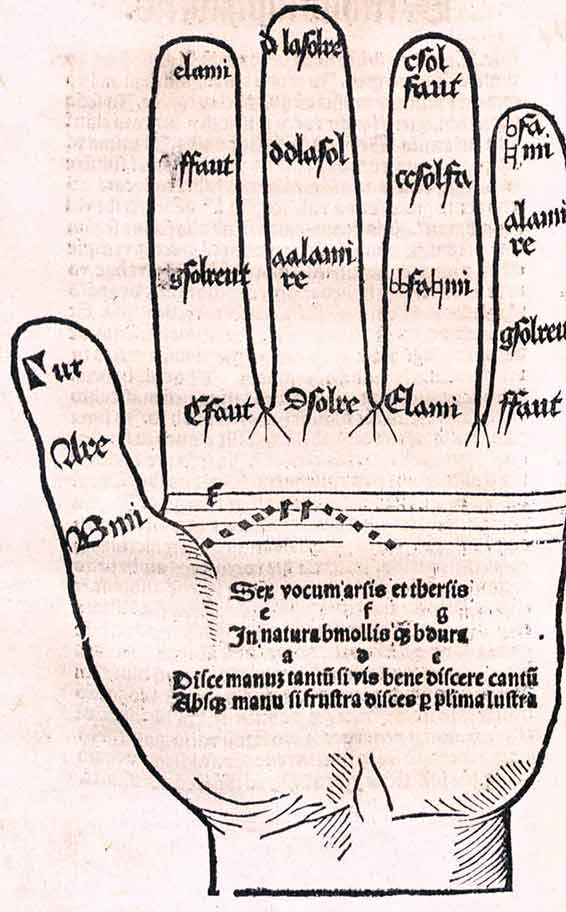 elami
ffaut
gsolreut
d lasolre
ddlasol
aalami
re
csol
faut
ccsolfa
bbfa♮mi
bfa
♮mi
alami
re
gsolreu
ut
Are
Bmi
Cfaut
Dsolre
Elami
ffaut
F
Sex vocum arsis et thersis
c f g
In natura bmollis qꝫ b dura
a d e
Disce manuꝫ tantū si vis bene discere cantū
Absqꝫ manu si frustra disces ꝑ plima lustra